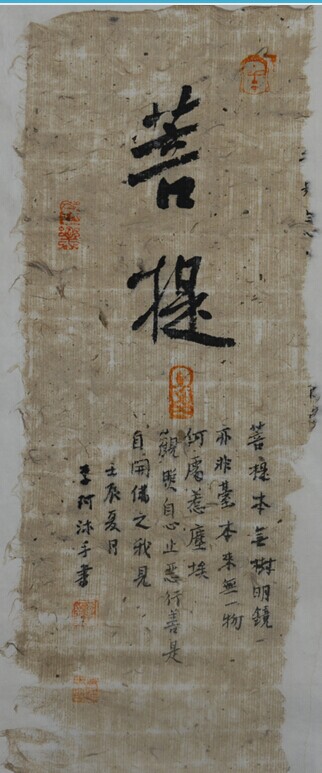 菩提
菩提本無樹明鏡
亦非臺本来無一物
何處惹塵埃
觀照自心止惡行善是
自開佛之我見
壬辰夏月
阿沐手書